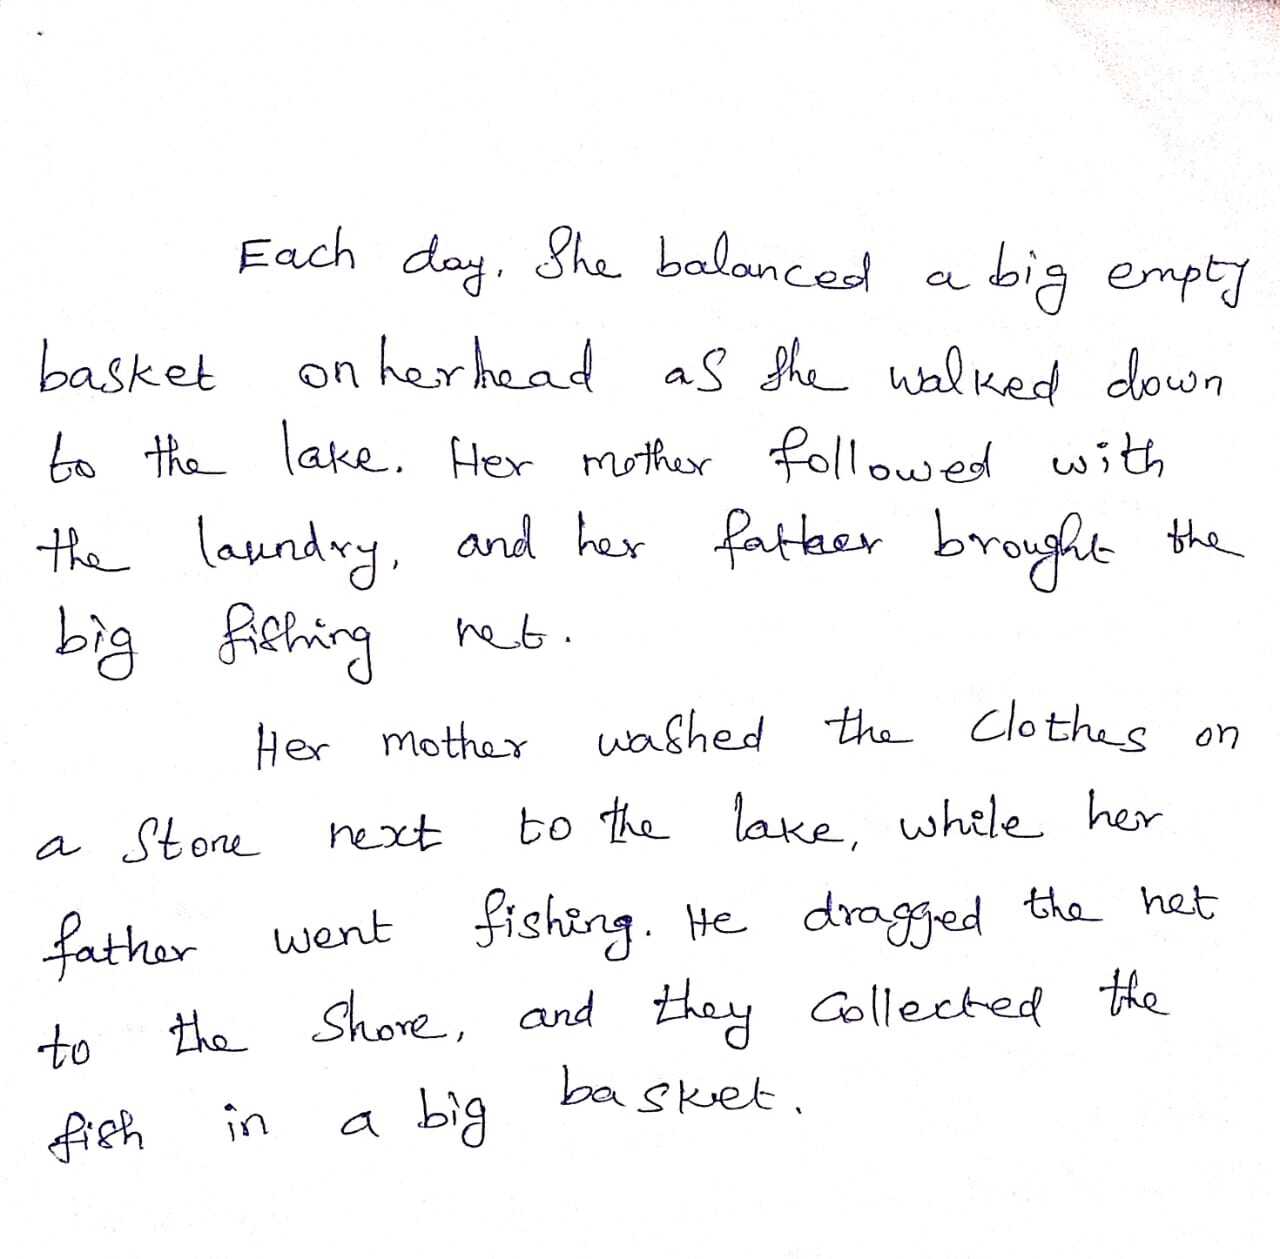 Each day, She balanced a big empty
basket on her head as she walked down
to the lake. Her mother followed with
the laundry, and her father brought the
big fishing net.
Her mother washed the clothes on
a Stone next to the lake, while her
father went fishing. He dragged the net
to the Shore, and they collected the
fish in a big basket.